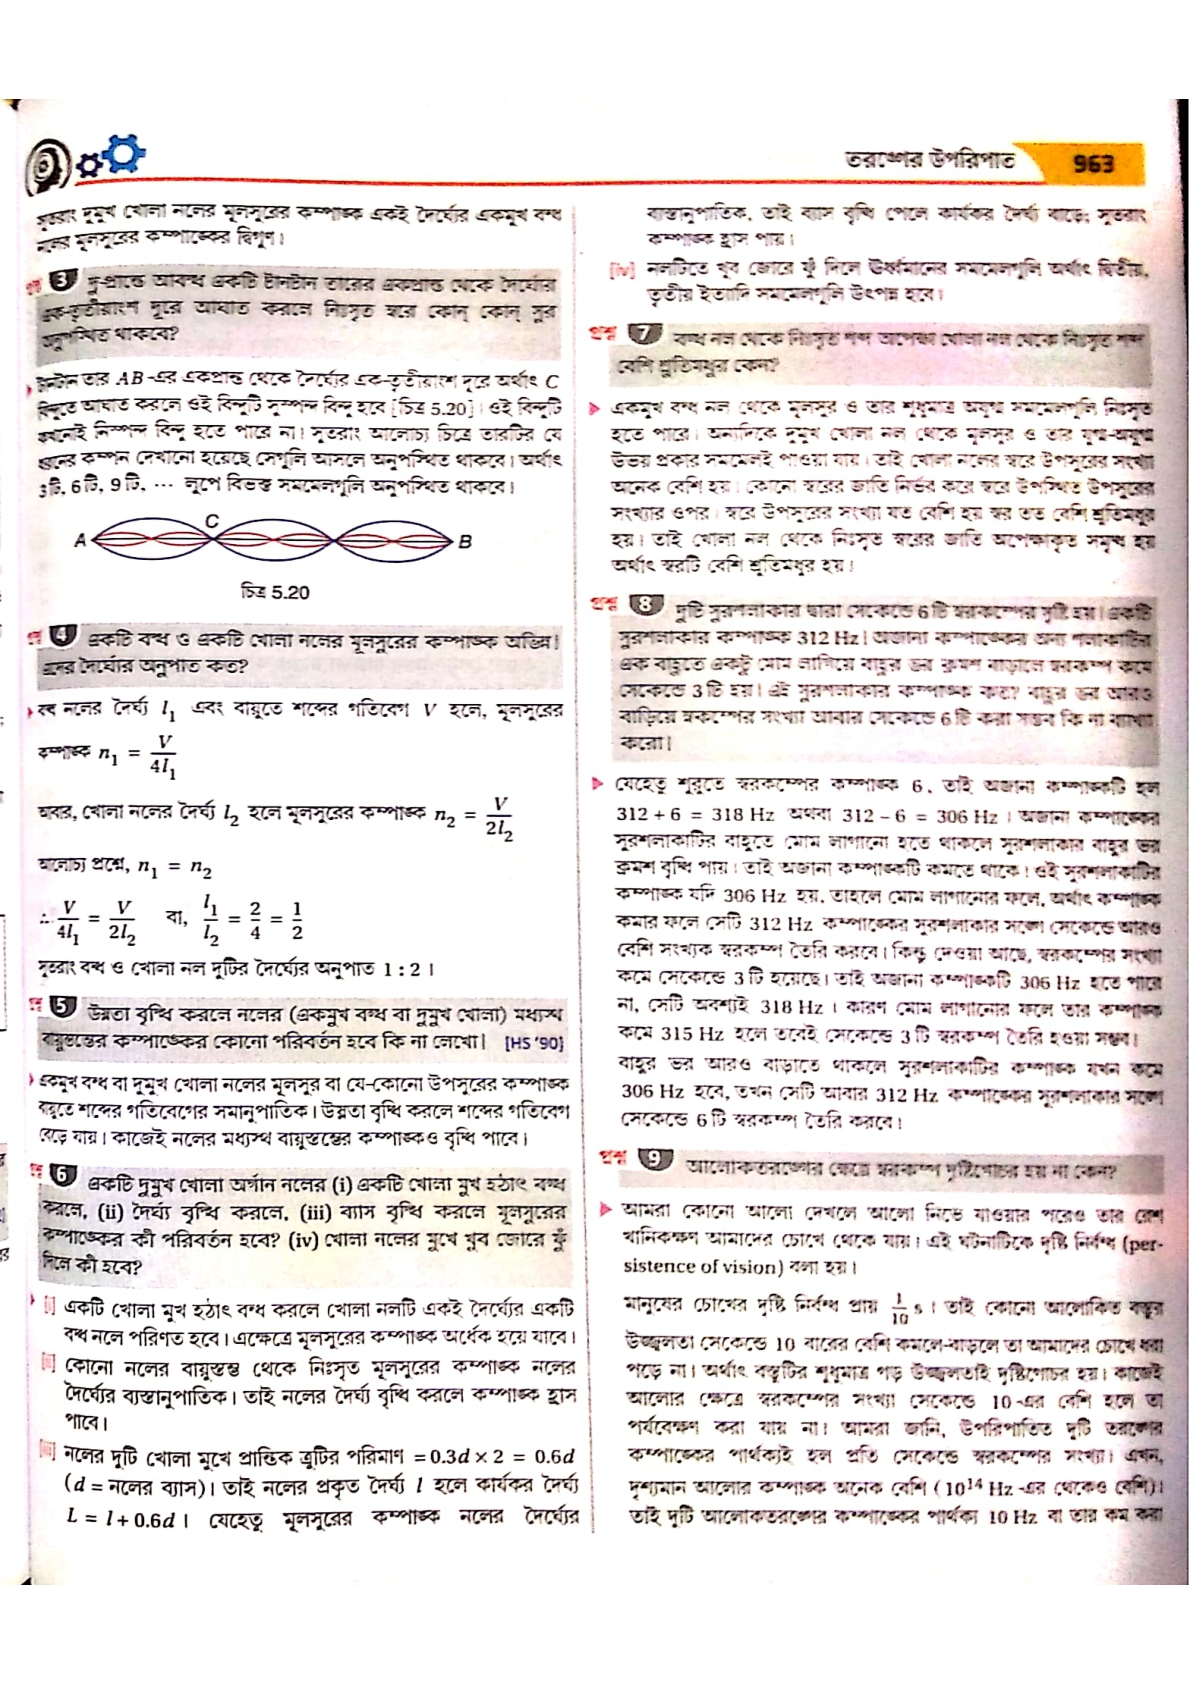 তরঙ্গের উপরিপাত 963
সুতরাং দুমুখ খোলা নলের মূলসুরের কম্পাঙ্ক একই দৈর্ঘ্যের একমুখ বন্ধ
নলের মূলসুরের কম্পাঙ্কের দ্বিগুণ।
প্রশ্ন 3 দু-প্রান্তে আবদ্ধ একটি টানটান তারের একপ্রান্ত থেকে দৈর্ঘ্যের
এক-তৃতীয়াংশ দূরে আঘাত করলে নিঃসৃত স্বরে কোন্ কোন্ সুর
অনুপস্থিত থাকবে?
টানটান তার AB-এর একপ্রান্ত থেকে দৈর্ঘ্যের এক-তৃতীয়াংশ দূরে অর্থাৎ C
বিন্দুতে আঘাত করলে ওই বিন্দুটি সুস্পন্দ বিন্দু হবে [চিত্র 5.20]। ওই বিন্দুটি
কখনোই নিস্পন্দ বিন্দু হতে পারে না। সুতরাং আলোচ্য চিত্রে তারটির যে
ধরনের কম্পন দেখানো হয়েছে সেগুলি আসলে অনুপস্থিত থাকবে। অর্থাৎ
3টি, 6টি, 9টি, ⋯ লুপে বিভক্ত সমমেলগুলি অনুপস্থিত থাকবে।
A C B
চিত্র 5.20
প্রশ্ন 4 একটি বন্ধ ও একটি খোলা নলের মূলসুরের কম্পাঙ্ক অভিন্ন।
এদের দৈর্ঘ্যের অনুপাত কত?
বন্ধ নলের দৈর্ঘ্য l₁ এবং বায়ুতে শব্দের গতিবেগ V হলে, মূলসুরের
কম্পাঙ্ক n₁ = V/4l₁
আবার, খোলা নলের দৈর্ঘ্য l₂ হলে মূলসুরের কম্পাঙ্ক n₂ = V/2l₂
আলোচ্য প্রশ্নে, n₁ = n₂
∴ V/4l₁ = V/2l₂ বা, l₁/l₂ = 2/4 = 1/2
সুতরাং বন্ধ ও খোলা নল দুটির দৈর্ঘ্যের অনুপাত 1 : 2।
প্রশ্ন 5 উষ্ণতা বৃদ্ধি করলে নলের (একমুখ বন্ধ বা দুমুখ খোলা) মধ্যস্থ
বায়ুস্তম্ভের কম্পাঙ্কের কোনো পরিবর্তন হবে কি না লেখো। [HS '90]
একমুখ বন্ধ বা দুমুখ খোলা নলের মূলসুর বা যে-কোনো উপসুরের কম্পাঙ্ক
বায়ুতে শব্দের গতিবেগের সমানুপাতিক। উষ্ণতা বৃদ্ধি করলে শব্দের গতিবেগ
বেড়ে যায়। কাজেই নলের মধ্যস্থ বায়ুস্তম্ভের কম্পাঙ্কও বৃদ্ধি পাবে।
প্রশ্ন 6 একটি দুমুখ খোলা অর্গান নলের (i) একটি খোলা মুখ হঠাৎ বন্ধ
করলে, (ii) দৈর্ঘ্য বৃদ্ধি করলে, (iii) ব্যাস বৃদ্ধি করলে মূলসুরের
কম্পাঙ্কের কী পরিবর্তন হবে? (iv) খোলা নলের মুখে খুব জোরে ফুঁ
দিলে কী হবে?
[i] একটি খোলা মুখ হঠাৎ বন্ধ করলে খোলা নলটি একই দৈর্ঘ্যের একটি
বন্ধ নলে পরিণত হবে। এক্ষেত্রে মূলসুরের কম্পাঙ্ক অর্ধেক হয়ে যাবে।
[ii] কোনো নলের বায়ুস্তম্ভ থেকে নিঃসৃত মূলসুরের কম্পাঙ্ক নলের
দৈর্ঘ্যের ব্যস্তানুপাতিক। তাই নলের দৈর্ঘ্য বৃদ্ধি করলে কম্পাঙ্ক হ্রাস
পাবে।
[iii] নলের দুটি খোলা মুখে প্রান্তিক ত্রুটির পরিমাণ = 0.3d × 2 = 0.6d
(d = নলের ব্যাস)। তাই নলের প্রকৃত দৈর্ঘ্য l হলে কার্যকর দৈর্ঘ্য
L = l + 0.6d। যেহেতু মূলসুরের কম্পাঙ্ক নলের দৈর্ঘ্যের
ব্যাস্তানুপাতিক, তাই ব্যাস বৃদ্ধি পেলে কার্যকর দৈর্ঘ্য বাড়ে; সুতরাং
কম্পাঙ্ক হ্রাস পায়।
[iv] নলটিতে খুব জোরে ফুঁ দিলে ঊর্ধ্বমানের সমমেলগুলি অর্থাৎ দ্বিতীয়,
তৃতীয় ইত্যাদি সমমেলগুলি উৎপন্ন হবে।
প্রশ্ন 7 বন্ধ নল থেকে নিঃসৃত শব্দ অপেক্ষা খোলা নল থেকে নিঃসৃত শব্দ
বেশি শ্রুতিমধুর কেন?
একমুখ বন্ধ নল থেকে মূলসুর ও তার শুধুমাত্র অযুগ্ম সমমেলগুলি নিঃসৃত
হতে পারে। অন্যদিকে দুমুখ খোলা নল থেকে মূলসুর ও তার যুগ্ম-অযুগ্ম
উভয় প্রকার সমমেলই পাওয়া যায়। তাই খোলা নলের স্বরে উপসুরের সংখ্যা
অনেক বেশি হয়। কোনো স্বরের জাতি নির্ভর করে স্বরে উপস্থিত উপসুরের
সংখ্যার ওপর। স্বরে উপসুরের সংখ্যা যত বেশি হয় স্বর তত বেশি শ্রুতিমধুর
হয়। তাই খোলা নল থেকে নিঃসৃত স্বরের জাতি অপেক্ষাকৃত সমৃদ্ধ হয়
অর্থাৎ স্বরটি বেশি শ্রুতিমধুর হয়।
প্রশ্ন 8 দুটি সুরশলাকার দ্বারা সেকেন্ডে 6টি স্বরকম্পের সৃষ্টি হয়। একটি
সুরশলাকার কম্পাঙ্ক 312 Hz। অজানা কম্পাঙ্কের অন্য শলাকাটির
এক বাহুতে একটু মোম লাগিয়ে বাহুর ভর ক্রমশ বাড়ালে স্বরকম্প কমে
সেকেন্ডে 3টি হয়। এই সুরশলাকার কম্পাঙ্ক কত? বাহুর ভর আরও
বাড়িয়ে স্বকম্পের সংখ্যা আবার সেকেন্ডে 6টি করা সম্ভব কি না ব্যাখ্যা
করো।
যেহেতু শুরুতে স্বরকম্পের কম্পাঙ্ক 6, তাই অজানা কম্পাঙ্কটি হল
312 + 6 = 318 Hz অথবা 312 – 6 = 306 Hz। অজানা কম্পাঙ্কের
সুরশলাকাটির বাহুতে মোম লাগানো হতে থাকলে সুরশলাকার বাহুর ভর
ক্রমশ বৃদ্ধি পায়। তাই অজানা কম্পাঙ্কটি কমতে থাকে। ওই সুরশলাকাটির
কম্পাঙ্ক যদি 306 Hz হয়, তাহলে মোম লাগানোর ফলে, অর্থাৎ কম্পাঙ্ক
কমার ফলে সেটি 312 Hz কম্পাঙ্কের সুরশলাকার সঙ্গে সেকেন্ডে আরও
বেশি সংখ্যক স্বরকম্প তৈরি করবে। কিন্তু দেওয়া আছে, স্বরকম্পের সংখ্যা
কমে সেকেন্ডে 3টি হয়েছে। তাই অজানা কম্পাঙ্কটি 306 Hz হতে পারে
না, সেটি অবশ্যই 318 Hz। কারণ মোম লাগানোর ফলে তার কম্পাঙ্ক
কমে 315 Hz হলে তবেই সেকেন্ডে 3টি স্বরকম্প তৈরি হওয়া সম্ভব।
বাহুর ভর আরও বাড়াতে থাকলে সুরশলাকাটির কম্পাঙ্ক যখন কমে
306 Hz হবে, তখন সেটি আবার 312 Hz কম্পাঙ্কের সুরশলাকার সঙ্গে
সেকেন্ডে 6টি স্বরকম্প তৈরি করবে।
প্রশ্ন 9 আলোকতরঙ্গের ক্ষেত্রে স্বরকম্প দৃষ্টিগোচর হয় না কেন?
আমরা কোনো আলো দেখলে আলো নিভে যাওয়ার পরেও তার রেশ
খানিকক্ষণ আমাদের চোখে থেকে যায়। এই ঘটনাটিকে দৃষ্টি নির্বন্ধ (per-
sistence of vision) বলা হয়।
মানুষের চোখের দৃষ্টি নির্বন্ধ প্রায় 1/10 s। তাই কোনো আলোকিত বস্তুর
উজ্জ্বলতা সেকেন্ডে 10 বারের বেশি কমলে-বাড়লে তা আমাদের চোখে ধরা
পড়ে না। অর্থাৎ বস্তুটির শুধুমাত্র গড় উজ্জ্বলতাই দৃষ্টিগোচর হয়। কাজেই
আলোর ক্ষেত্রে স্বরকম্পের সংখ্যা সেকেন্ডে 10-এর বেশি হলে তা
পর্যবেক্ষণ করা যায় না। আমরা জানি, উপরিপাতিত দুটি তরঙ্গের
কম্পাঙ্কের পার্থক্যই হল প্রতি সেকেন্ডে স্বরকম্পের সংখ্যা। এখন,
দৃশ্যমান আলোর কম্পাঙ্ক অনেক বেশি (10¹⁴ Hz-এর থেকেও বেশি)।
তাই দুটি আলোকতরঙ্গের কম্পাঙ্কের পার্থক্য 10 Hz বা তার কম করা